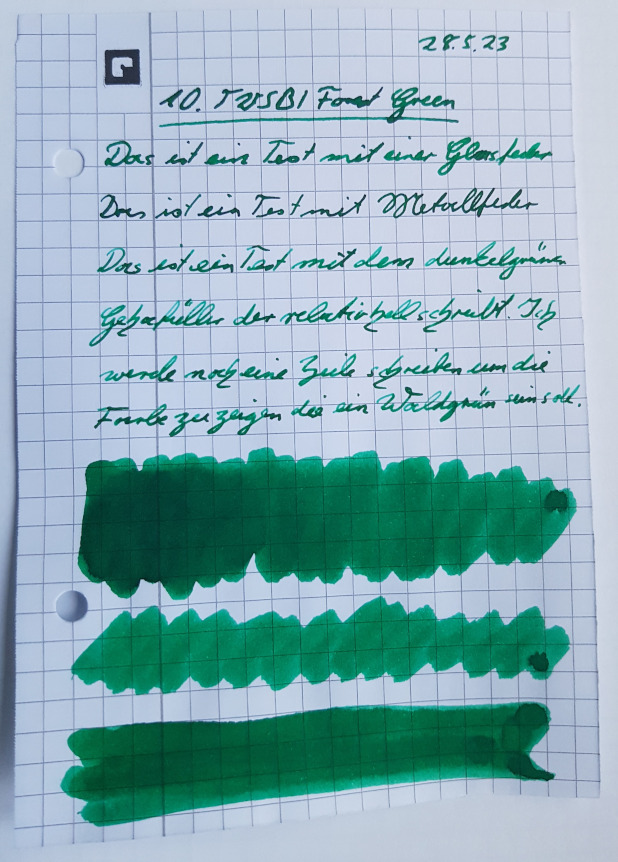 28.5.23
10. TWSBI Forest Green
Das ist ein Test mit einer Glasfeder
Das ist ein Test mit Metallfeder
Das ist ein Test mit dem dunkelgrünen
Gehafüller der relativ hell schreibt. Ich
werde noch eine Zeile schreiben um die
Farbe zu zeigen die ein Waldgrün sein soll.